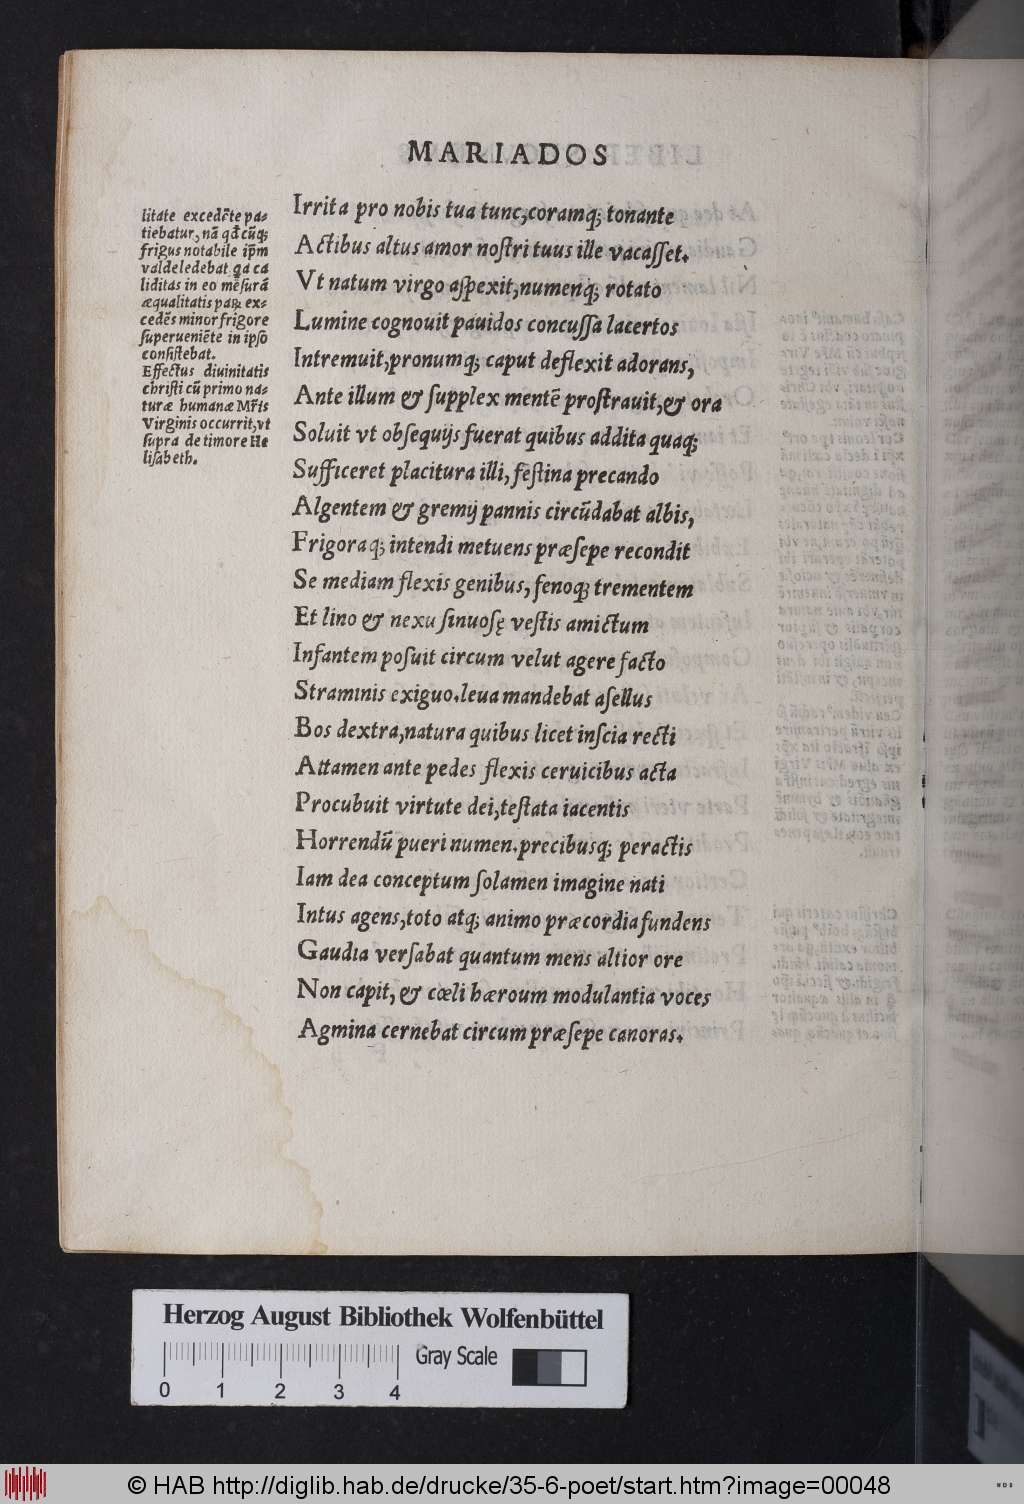 MARIADOS
litate excedẽte pa⸗
tiebatur, nã qđ cũq;
frigus notabile ip̃m
valdeledebat qa ca
liditas in eo mẽsurã
æqualitatis paꝝ ex⸗
cedẽs minor frigore
superueniẽte in ipſo
conſiſtebat.
Effectus diuinitatis
chriſti cũ primo na⸗
turæ humanæ Mr̃is
Virginis occurrit, vt
ſupra de timore He
liſabeth.
Irrita pro nobis tua tunc, coramq; tonante
Actibus altus amor noſtri tuus ille vacaſſet.
Vt natum virgo aſpexit, numenq; rotato
Lumine cognouit pauidos concuſſa lacertos
Intremuit, pronumq; caput deflexit adorans,
Ante illum & ſupplex mentẽ proſtrauit, & ora
Soluit vt obſequijs fuerat quibus addita quaq;
Sufficeret placitura illi, feſtina precando
Algentem & gremij pannis circũdabat albis,
Frigoraq; intendi metuens præſepe recondit
Se mediam flexis genibus, fenoq; trementem
Et lino & nexu ſinuoſę veſtis amictum
Infantem poſuit circum velut agere facto
Straminis exiguo. leua mandebat aſellus
Bos dextra, natura quibus licet inſcia recti
Attamen ante pedes flexis ceruicibus acta
Procubuit virtute dei, teſtata iacentis
Horrendũ pueri numen. precibusq; peractis
Iam dea conceptum ſolamen imagine nati
Intus agens, toto atq; animo præcordia fundens
Gaudia verſabat quantum mens altior ore
Non capit, & cœli hæroum modulantia voces
Agmina cernebat circum præſepe canoras.
Herzog August Bibliothek Wolfenbüttel
Gray Scale
0 1 2 3 4
© HAB http://diglib.hab.de/drucke/35-6-poet/start.htm?image=00048